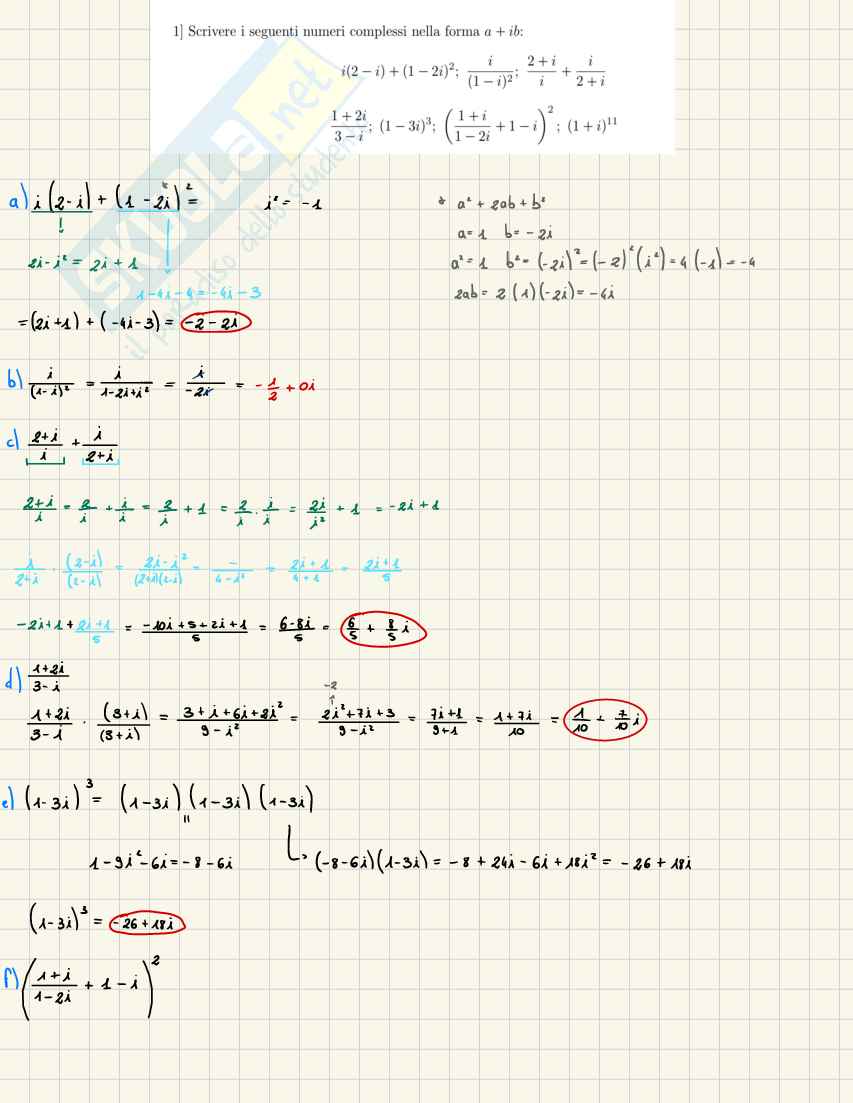 1] Scrivere i seguenti numeri complessi nella forma a + ib:
i(2 − i) + (1 − 2i)²; i/(1 − i)²; (2 + i)/i + i/(2 + i)
(1 + 2i)/(3 − i); (1 − 3i)³; ((1 + i)/(1 − 2i) + 1 − i)²; (1 + i)¹¹
SKUOLA.net
il paradiso dello studente
a) i(2-i) + (1 - 2i)² = i² = -1
* a² + 2ab + b²
a=1 b=-2i
a²=1 b²=(-2i)²=(-2)²(i²)=4(-1)=-4
2ab = 2(1)(-2i)=-4i
2i-i² = 2i+1
1-4i-4=-4i-3
=(2i+1) + (-4i-3) = -2-2i
b) i/(1-i)² = i/(1-2i+i²) = i/(-2i) = -1/2 + 0i
c) (2+i)/i + i/(2+i)
(2+i)/i = 2/i + i/i = 2/i + 1 = 2/i · i/i = 2i/i² + 1 = -2i+1
i/(2+i) · (2-i)/(2-i) = (2i-i²)/((2+i)(2-i)) = -/(4-i²) = (2i+1)/(4+1) = (2i+1)/5
-2i+1+(2i+1)/5 = (-10i+5+2i+1)/5 = (6-8i)/5 = 6/5 + 8/5 i
d) (1+2i)/(3-i)
-2
(1+2i)/(3-i) · (3+i)/(3+i) = (3+i+6i+2i²)/(9-i²) = (2i²+7i+3)/(9-i²) = (7i+1)/(9+1) = (1+7i)/10 = 1/10 + 7/10 i
e) (1-3i)³ = (1-3i)(1-3i)(1-3i)
1-9i²-6i=-8-6i (-8-6i)(1-3i) = -8+24i-6i+18i² = -26+18i
(1-3i)³ = -26+18i
f) ((1+i)/(1-2i) + 1 - i)²